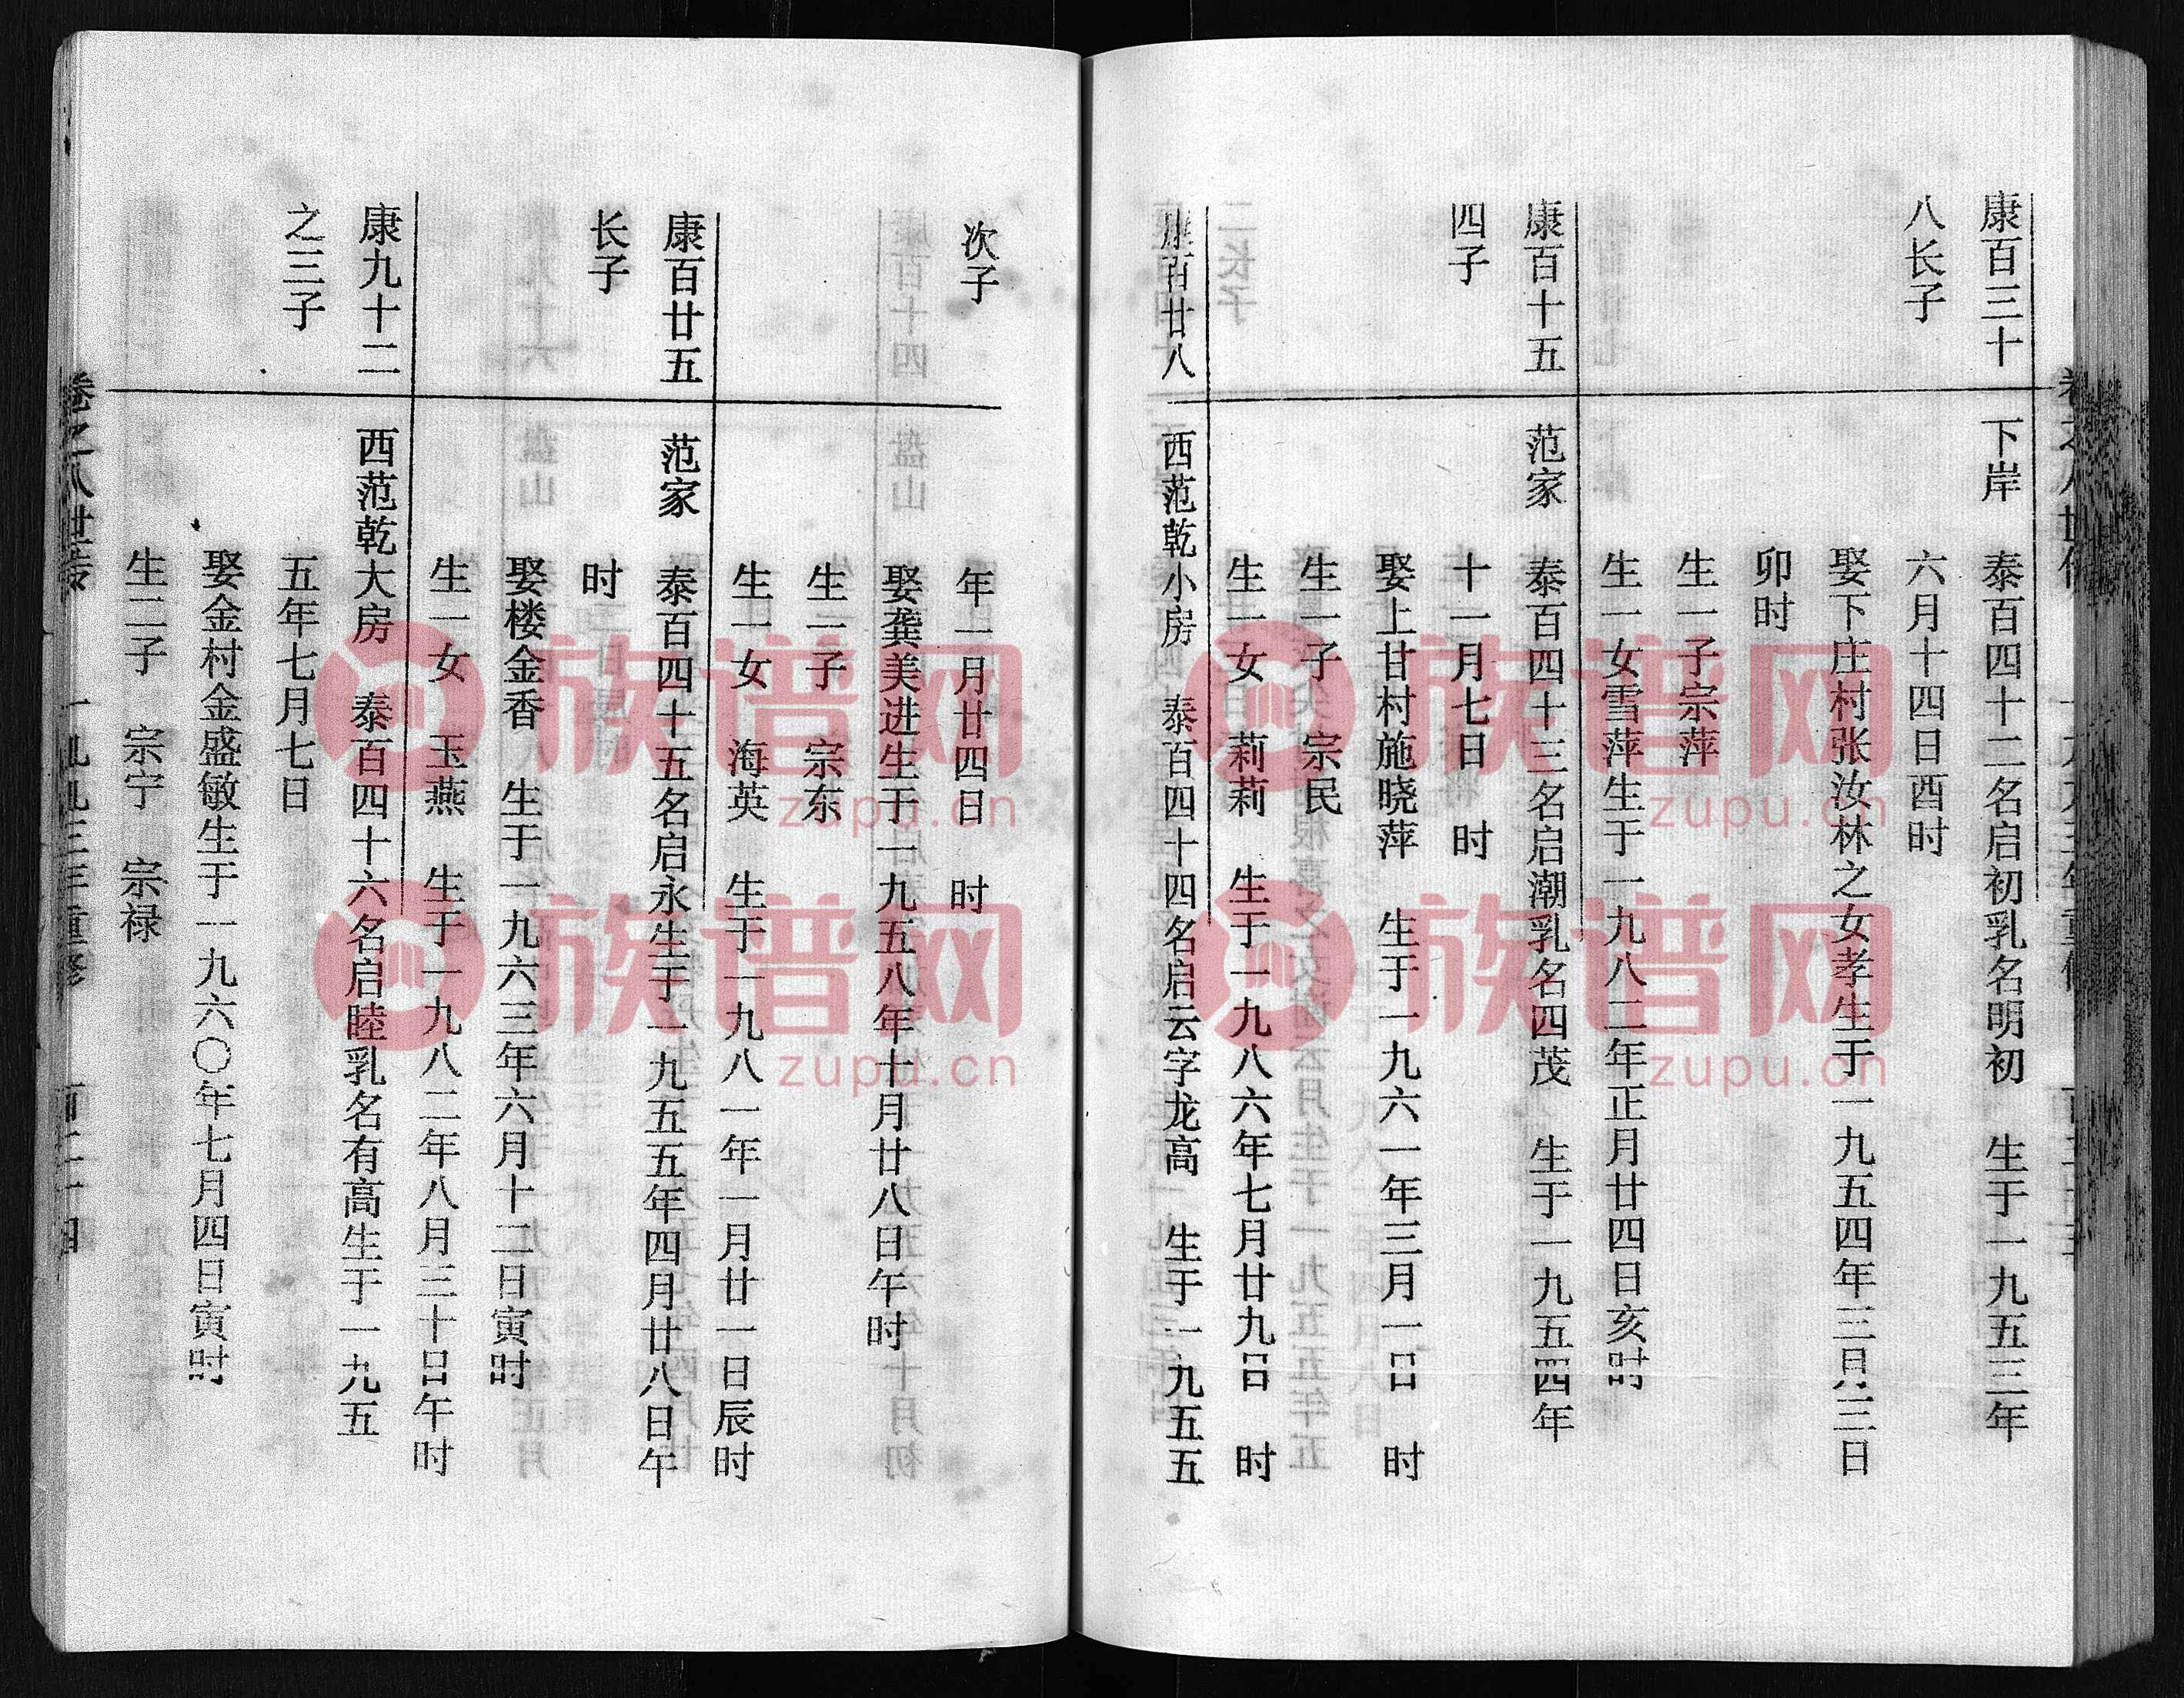 康百三十 下岸 泰百四十二名启初乳名明初 生于一九五三年
八长子 六月十四日酉时
娶下庄村张汝林之女孝生于一九五四年三月三日
卯时
生一子宗萍
生一女雪萍生于一九八二年正月廿四日亥时
康百十五 范家 泰百四十三名启潮乳名四茂 生于一九五四年
四子 十一月七日 时
娶上甘村施晓萍 生于一九六一年三月一日 时
生一子 宗民
生一女 莉莉 生于一九八六年七月廿九日 时
康百廿八 西范乾小房 泰百四十四名启云字龙高 生于一九五五
次子 年一月廿四日 时
娶龚美进生于一九五八年十月廿八日午时
生一子 宗东
生一女 海英 生于一九八一年一月廿一日辰时
康百廿五 范家 泰百四十五名启永生于一九五五年四月廿八日午
长子 时
娶楼金香 生于一九六三年六月十二日寅时
生一女 玉燕 生于一九八二年八月三十日午时
康九十二 西范乾大房 泰百四十六名启陸乳名有高生于一九五
之三子 五年七月七日
娶金村金盛敏生于一九六〇年七月四日寅时
生二子 宗宁 宗禄
卷之八世传 一九九三年重修
族谱网
zupu.cn
族谱网
zupu.cn
族谱网
zupu.cn
族谱网
zupu.cn